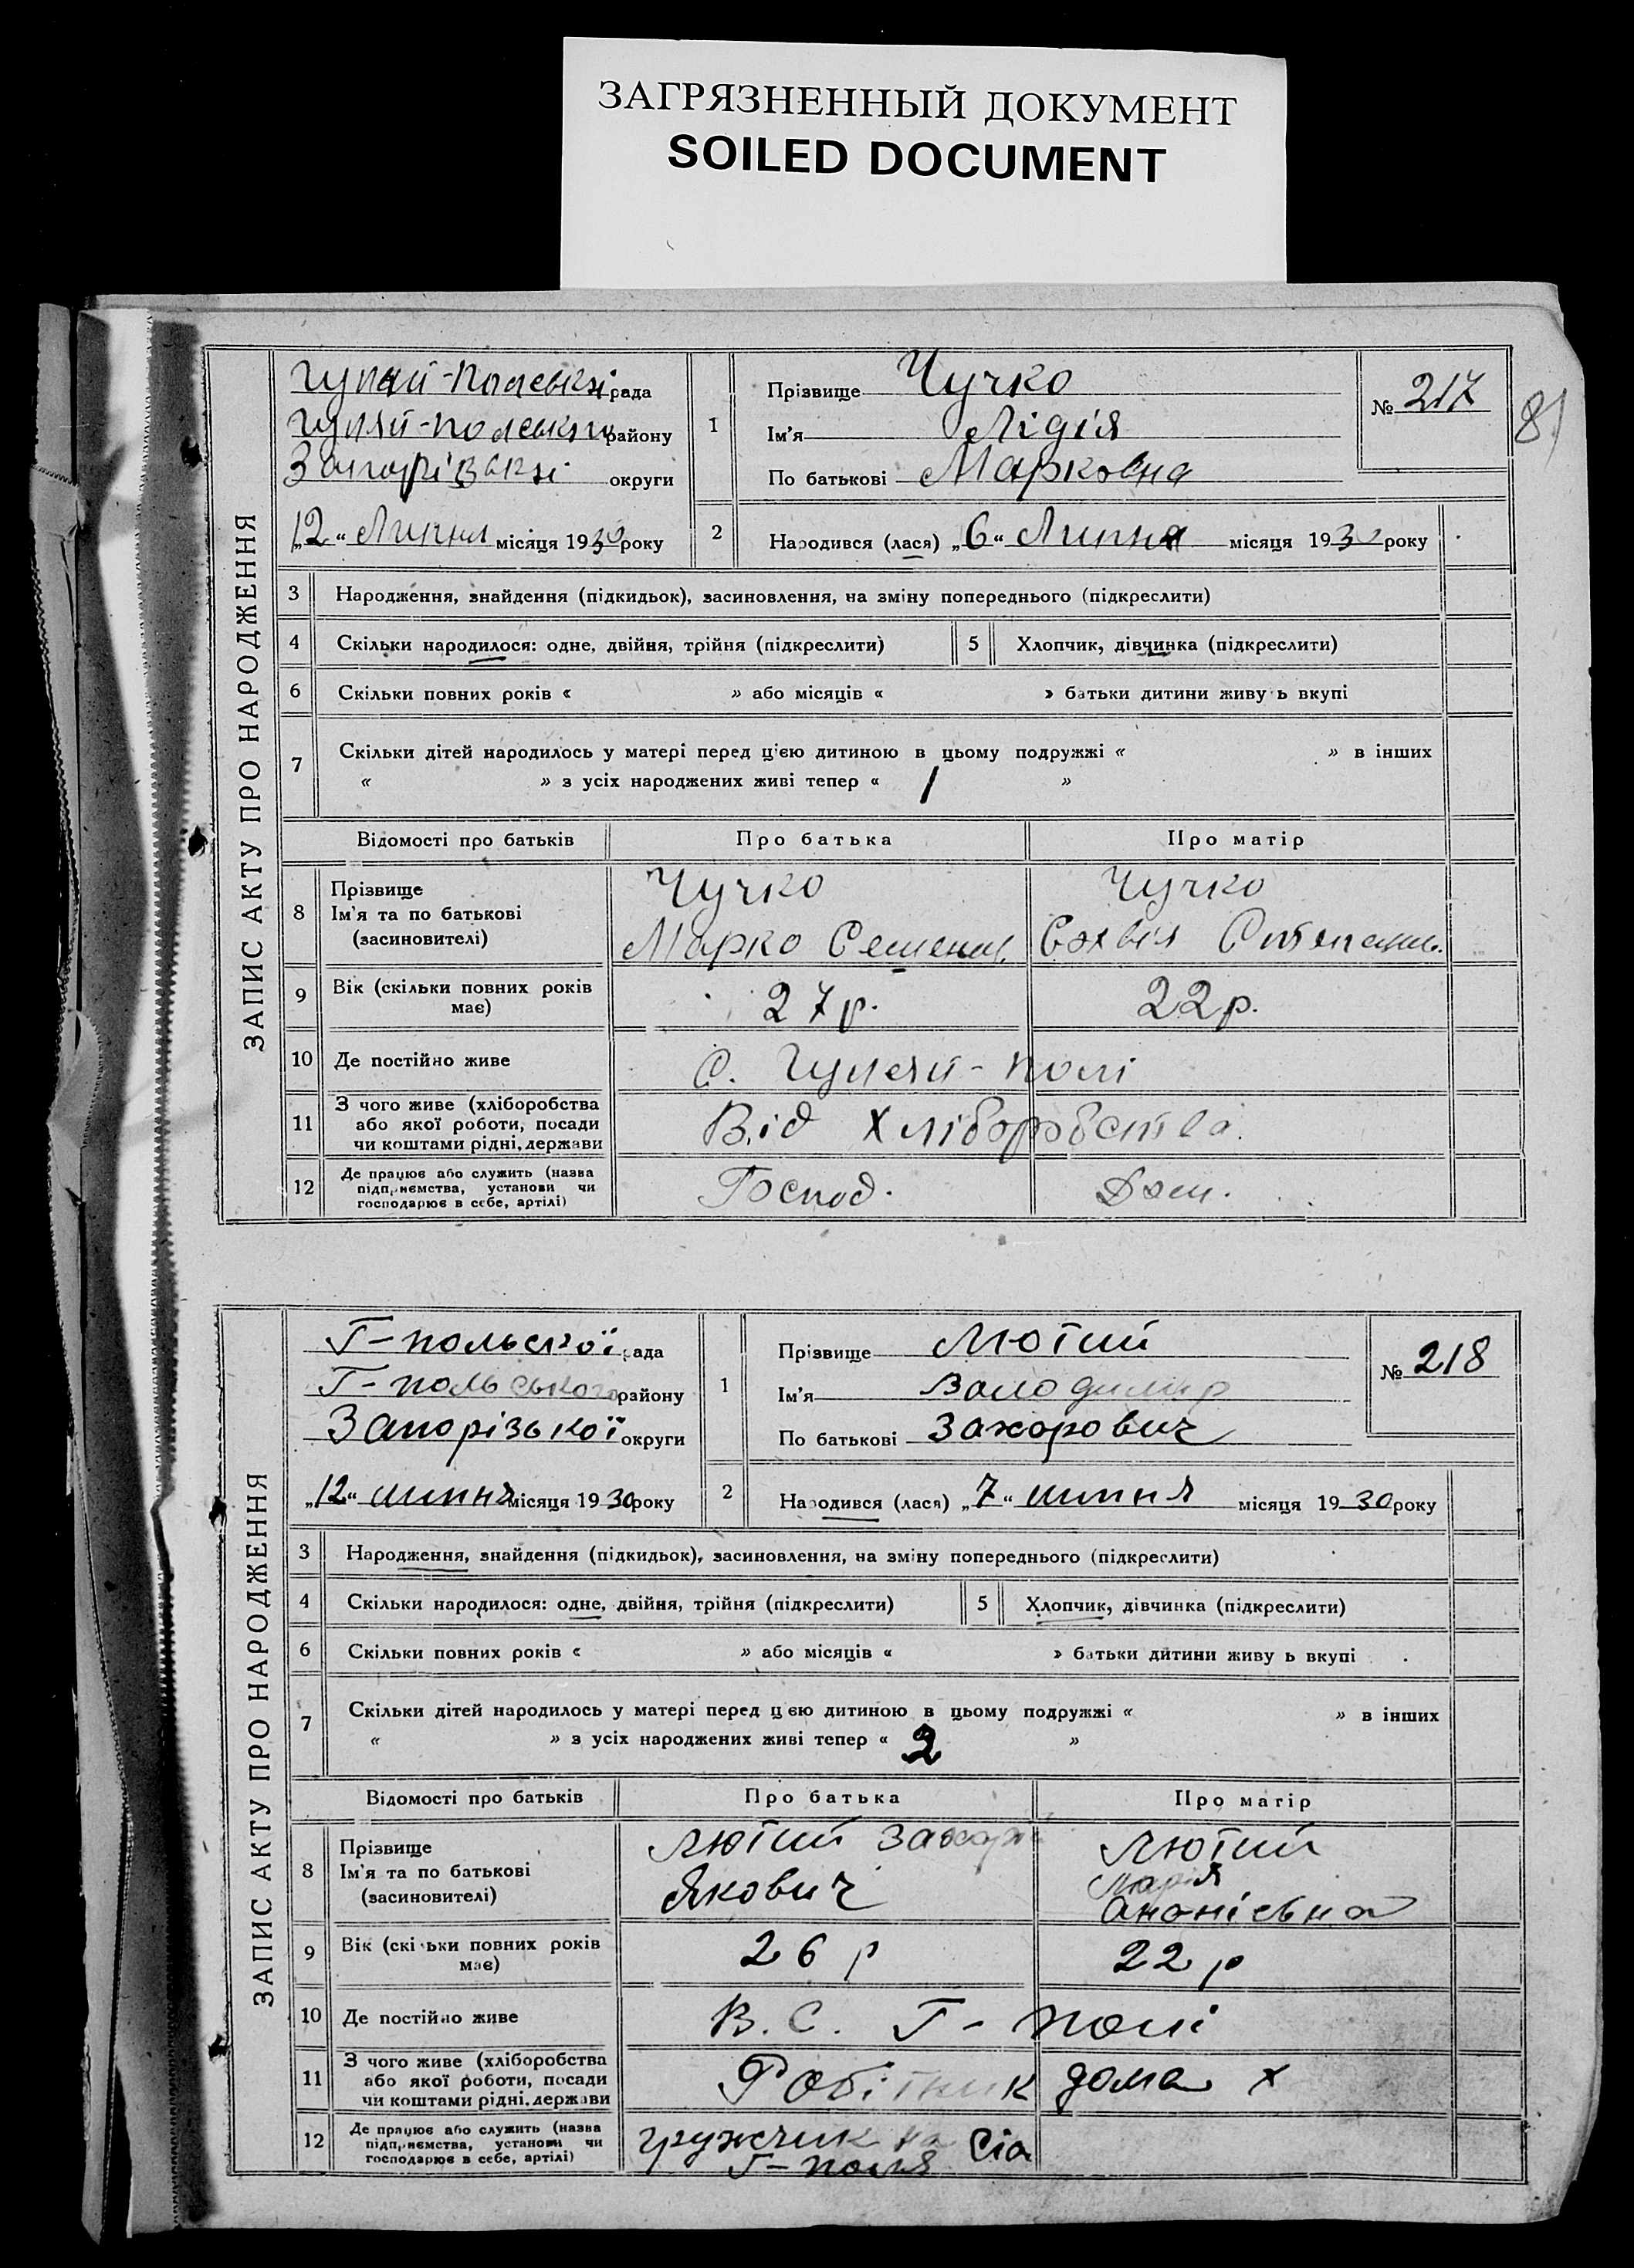 ЗАГРЯЗНЕННЫЙ ДОКУМЕНТ
SOILED DOCUMENT
81
ЗАПИС АКТУ ПРО НАРОДЖЕННЯ
Гуляй-Польської рада
Гуляй-польського району
Запорізької округи
„12“ Липня місяця 1930 року
1
Прізвище Чучко
Ім'я Лідія
По батькові Марковна
№ 217
2
Народився (лася) „6“ Липня місяця 1930 року
3 Народження, знайдення (підкидьок), засиновлення, на зміну попереднього (підкреслити)
4 Скільки народилося: одне, двійня, трійня (підкреслити) 5 Хлопчик, дівчинка (підкреслити)
6 Скільки повних років « » або місяців « » батьки дитини живуь вкупі
7 Скільки дітей народилось у матері перед цією дитиною в цьому подружжі « » в інших
« » з усіх народжених живі тепер « 1 »
Відомості про батьків Про батька Про матір
8 Прізвище
Ім'я та по батькові
(засиновителі)
Чучко
Марко Семенов.
Чучко
Степанов.
9 Вік (скільки повних років має) 27 р. 22 р.
10 Де постійно живе С. Гуляй-Полі
11 З чого живе (хліборобства
або якої роботи, посади
чи коштами рідні, держави
Від Хліборобства.
12 Де працює або служить (назва
підприємства, установи чи
господарює в себе, артілі)
Господ. Дом.
ЗАПИС АКТУ ПРО НАРОДЖЕННЯ
Г-польської рада
Г-польського району
Запорізької округи
„12“ липня місяця 1930 року
1
Прізвище Лютий
Ім'я Володимир
По батькові Захарович
№ 218
2
Народився (лася) „7“ липня місяця 1930 року
3 Народження, знайдення (підкидьок), засиновлення, на зміну попереднього (підкреслити)
4 Скільки народилося: одне, двійня, трійня (підкреслити) 5 Хлопчик, дівчинка (підкреслити)
6 Скільки повних років « » або місяців « » батьки дитини живу ь вкупі
7 Скільки дітей народилось у матері перед цією дитиною в цьому подружжі « » в інших
« » з усіх народжених живі тепер « 2 »
Відомості про батьків Про батька Про матір
8 Прізвище
Ім'я та по батькові
(засиновителі)
Лютий Захар
Якович
Лютий
Марія
Ананієвна
9 Вік (скільки повних років має) 26 р 22 р
10 Де постійно живе В. С. Г-Полі
11 З чого живе (хліборобства
або якої роботи, посади
чи коштами рідні, держави
Робітник дома х
12 Де працює або служить (назва
підприємства, установи чи
господарює в себе, артілі)
грузчик на
Г-Поля